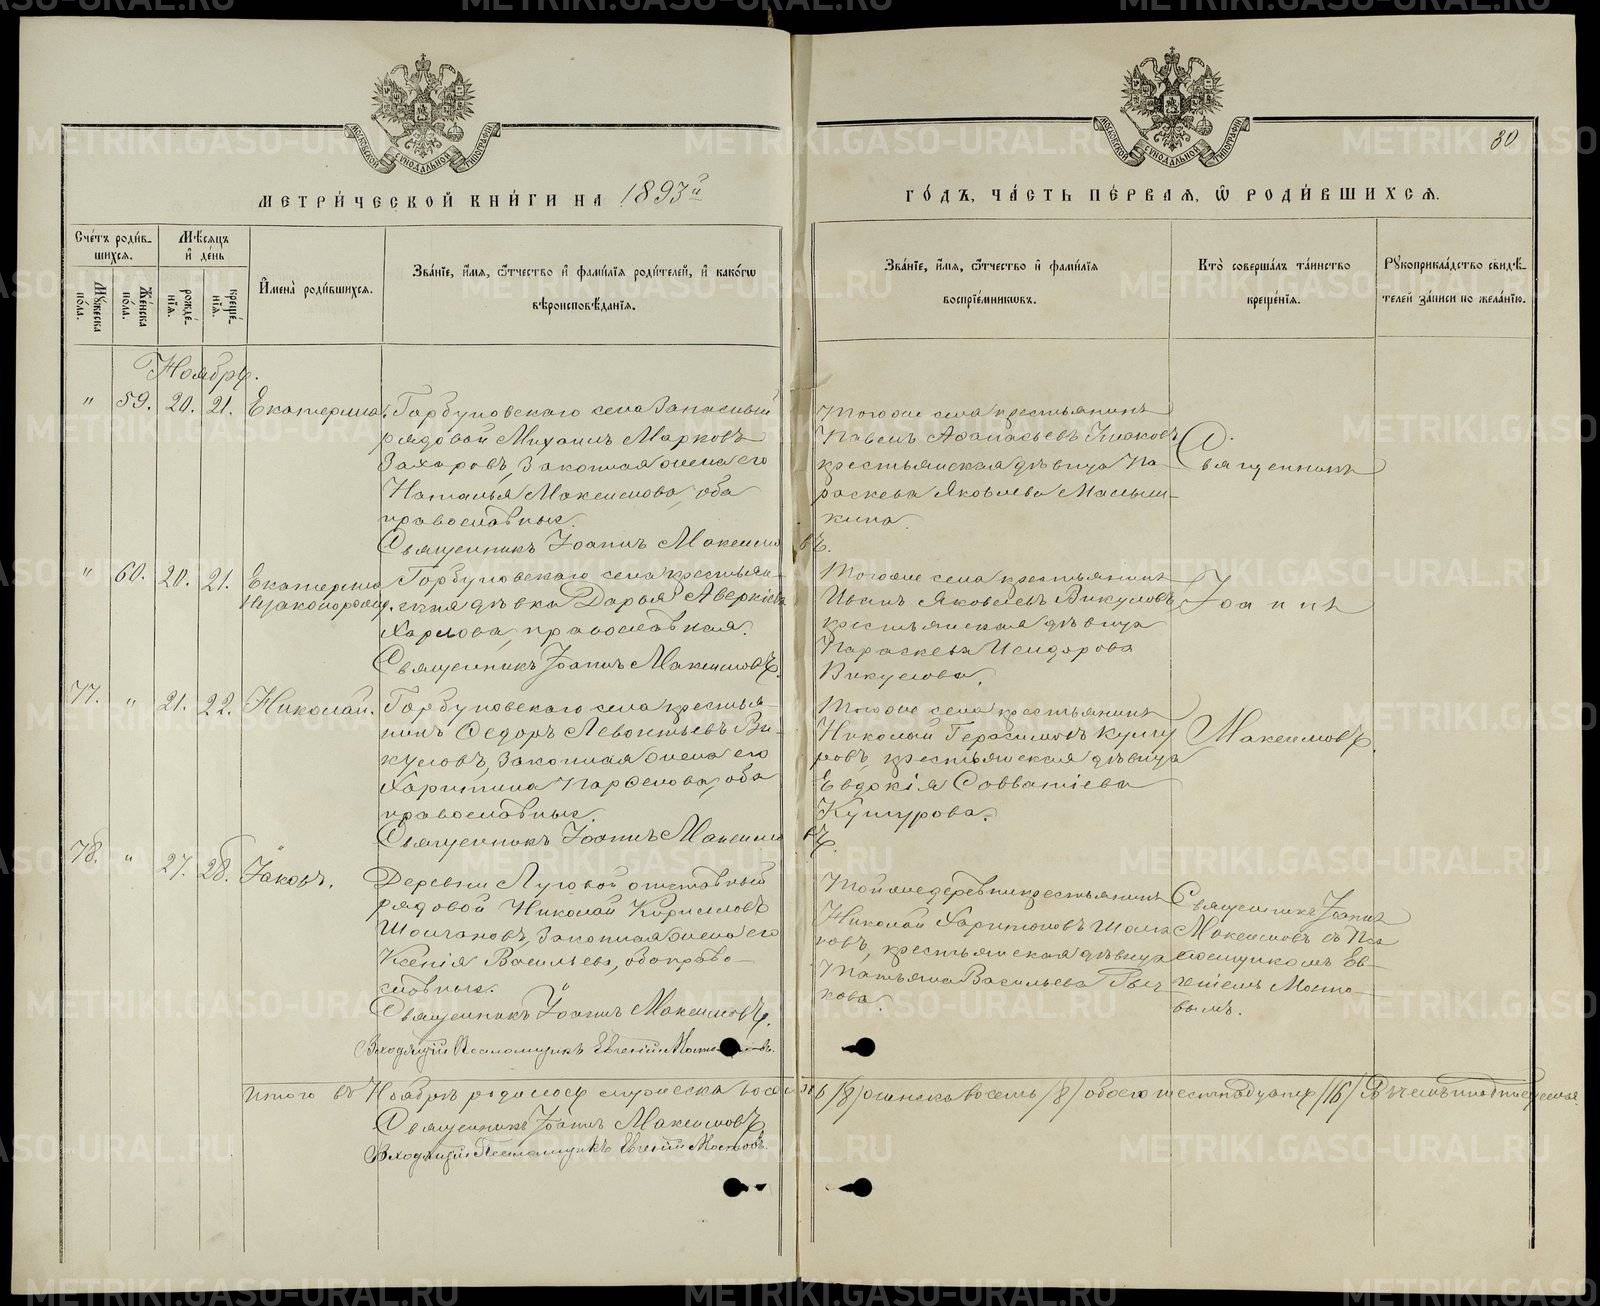 МЕТРИ́ЧЕСКОЙ КНИ́ГИ НА 1893й
ГО́ДЪ, ЧА́СТЬ ПЕ́РВАЯ, Ѡ РОДИ́ВШИХСѦ.
80
МОСКОВСКОЙ СѴНОДАЛЬНОЙ ТИПОГРАФІИ
МОСКОВСКОЙ СѴНОДАЛЬНОЙ ТИПОГРАФІИ
Сче́тъ роди́в-
шихсѧ.
Мꙋжеска по́ла.
Же́нска по́ла.
Мѣ́сѧцъ
и де́нь
рожде́-
нїѧ.
креще́-
нїѧ.
И҆мена̀ роди́вшихсѧ.
Зва́нїе, и҆́мѧ, ѻ҆́тчество и҆ фами́лїѧ роди́телей, и҆ како́гѡ
вѣроисповѣ́данїѧ.
Зва́нїе, и҆́мѧ, ѻ҆́тчество и҆ фами́лїѧ
воспрїе́мникѡвъ.
Кто̀ соверша́лъ та́инство
креще́нїѧ.
Рꙋкоприкла́дство свидѣ́-
телей за́писи по жела́нїю.
Ноябрь.
" 59. 20. 21. Екатерина.
Горбуновскаго села Запасный
рядовой Михаилъ Марковъ
Захаровъ, Законная жена его
Наталья Максимова, оба
православные.
Священникъ Іоаннъ Максимовъ.
Тогоже села крестьянинъ
Павелъ Афанасьевъ
крестьянская дѣвица Па-
раскева Яковлева
Священникъ
" 60. 20. 21. Екатерина
Незаконорожд.
Горбуновскаго села крестьян-
ская дѣвка Дарья Аверкіева
Харлова, православная.
Священникъ Іоаннъ Максимовъ.
Тогоже села крестьянинъ
Иванъ Яковлевъ Викуловъ
крестьянская дѣвица
Параскева Исидорова
Викулова.
Іоаннъ
77. " 21. 22. Николай.
Горбуновскаго села крестья-
нинъ Федоръ Левонтьевъ Ви-
куловъ, Законная жена его
Харитина Парфенова, оба
православные.
Священникъ Іоаннъ Максимовъ.
Тогоже села крестьянинъ
Николай Герасимовъ
крестьянская дѣвица
Евдокія Савватіева
Максимовъ.
78. " 27. 28. Іаковъ.
Деревни Луговой отставный
рядовой Николай Кириловъ
Законная жена его
Ксенія Васильева, оба право-
славные.
Священникъ Іоаннъ Максимовъ.
И.д. Псаломщикъ Евгеній
Тойже деревни крестьянинъ
Николай Харитоновъ
крестьянская дѣвица
Татьяна Васильева
Священникъ Іоаннъ
Максимовъ съ Пса-
ломщикомъ Ев-
геніемъ
Итого въ Ноябрѣ родилось мужеска восемь /8/ женска восемь /8/ обоего шестнадцать /16/
Священникъ Іоаннъ Максимовъ
Псаломщикъ Евгеній
METRIKI.GASO-URAL.RU